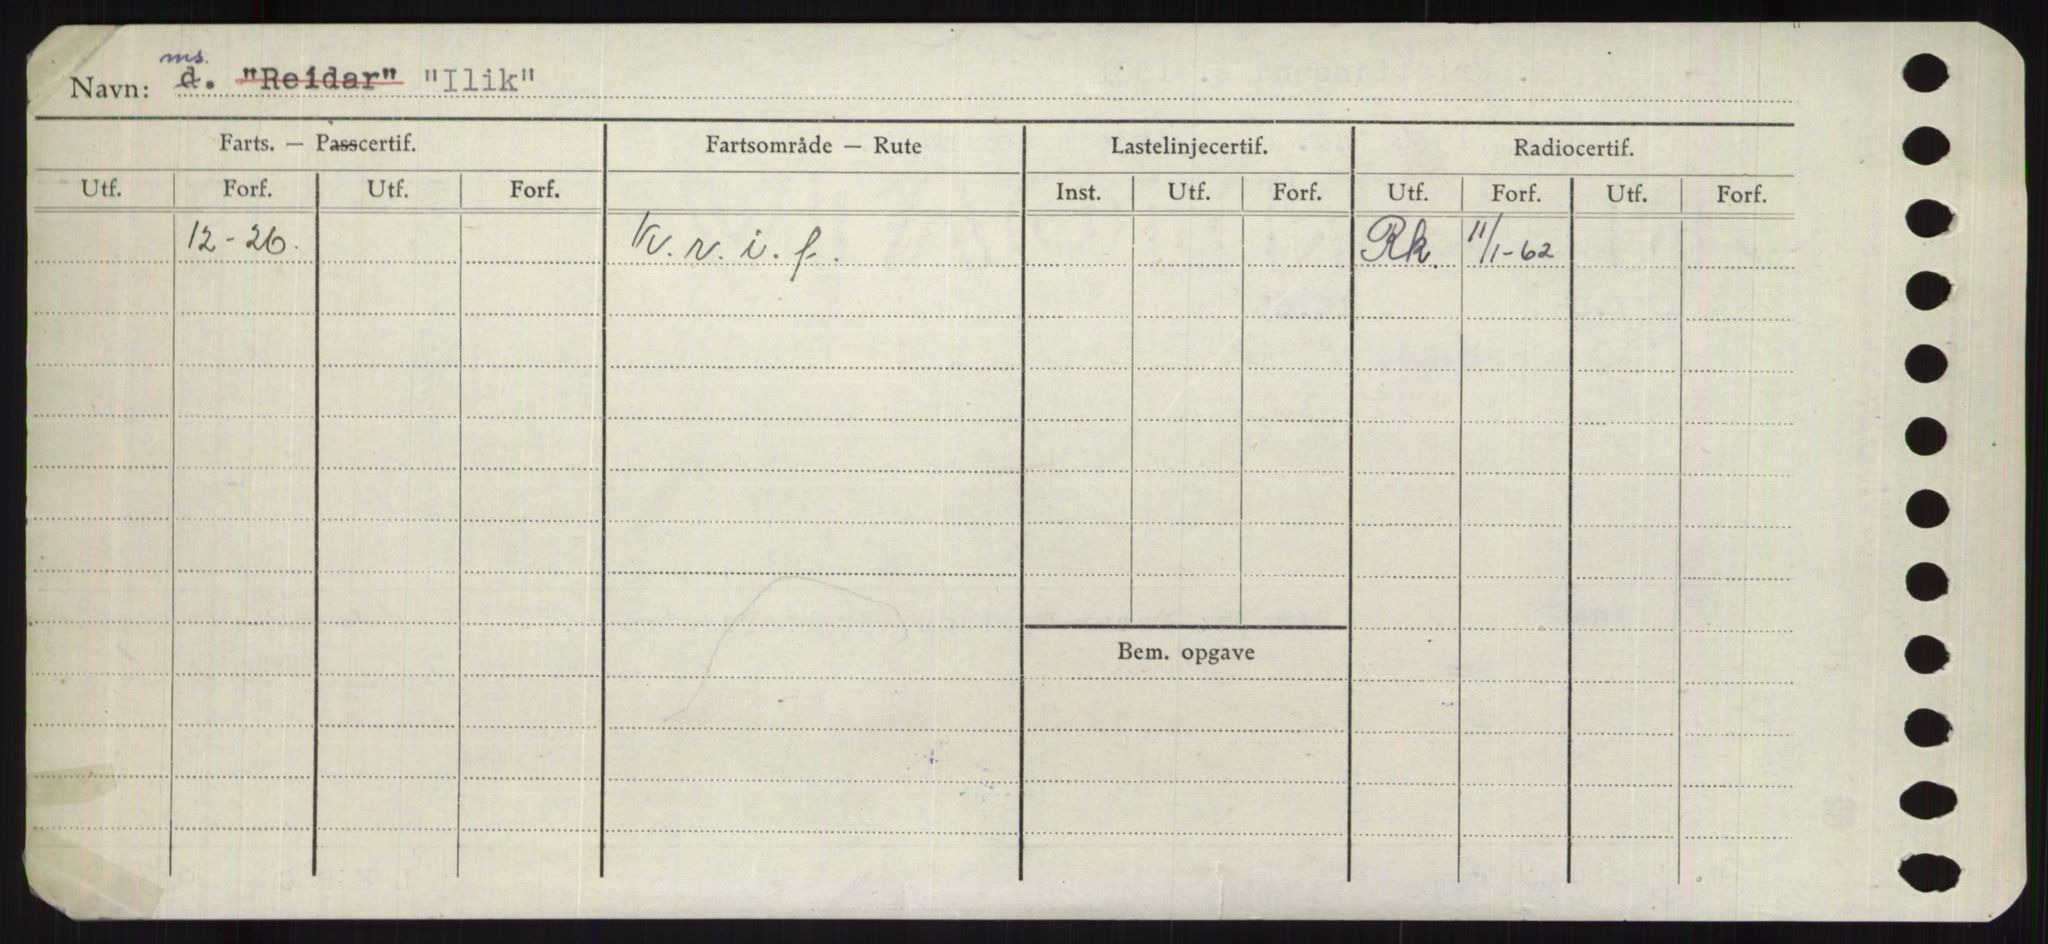 ms.
Navn: d. "Reidar" "Ilik"
Farts. — Passcertif. Fartsområde — Rute Lastelinjecertif. Radiocertif.
Utf. Forf. Utf. Forf. Inst. Utf. Forf. Utf. Forf. Utf. Forf.
12-26. v. i. f. Rk. 11/1-62
Bem. opgave